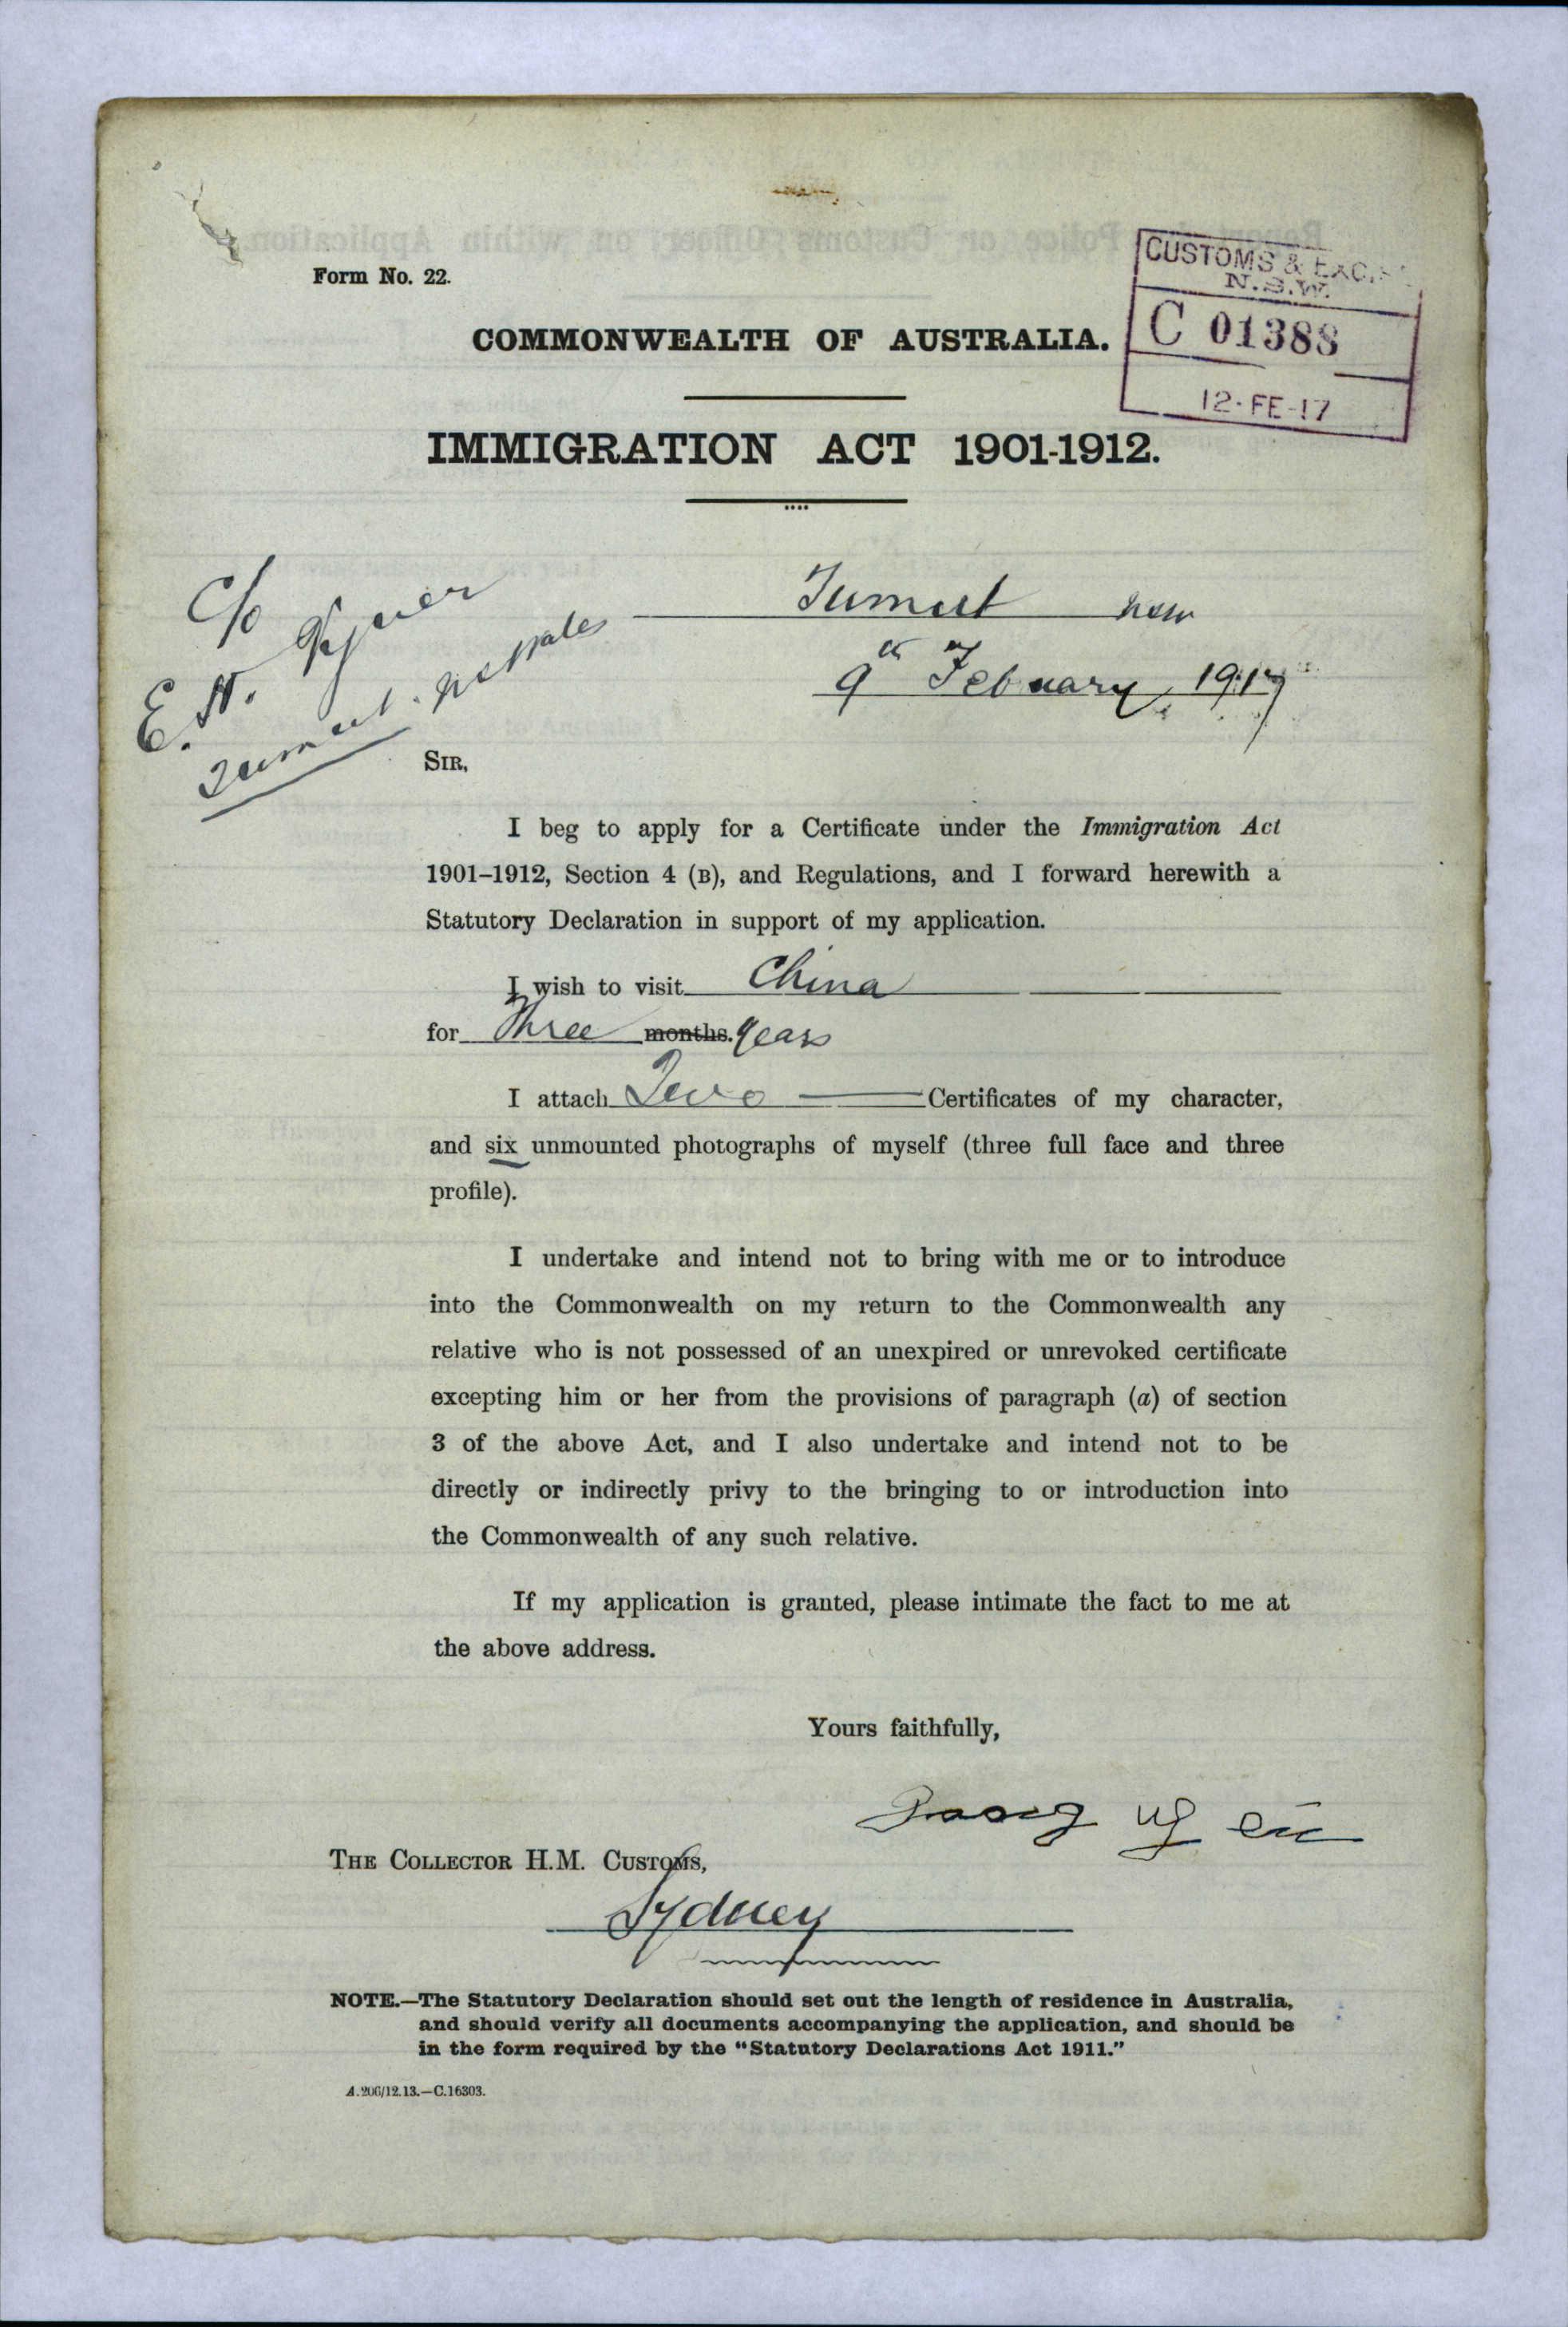 Form No. 22.
CUSTOMS & EXCISE
N.S.W.
C 01388
12·FE·17
COMMONWEALTH OF AUSTRALIA.
IMMIGRATION ACT 1901-1912.
C/o
E. H.
Tumut.
Tumut nsw
9th Febuary, 1917
SIR,
I beg to apply for a Certificate under the Immigration Act
1901–1912, Section 4 (B), and Regulations, and I forward herewith a
Statutory Declaration in support of my application.
I wish to visit China
for Three months. years
I attach Two Certificates of my character,
and six unmounted photographs of myself (three full face and three
profile).
I undertake and intend not to bring with me or to introduce
into the Commonwealth on my return to the Commonwealth any
relative who is not possessed of an unexpired or unrevoked certificate
excepting him or her from the provisions of paragraph (a) of section
3 of the above Act, and I also undertake and intend not to be
directly or indirectly privy to the bringing to or introduction into
the Commonwealth of any such relative.
If my application is granted, please intimate the fact to me at
the above address.
Yours faithfully,
THE COLLECTOR H.M. CUSTOMS,
Sydney
NOTE.—The Statutory Declaration should set out the length of residence in Australia,
and should verify all documents accompanying the application, and should be
in the form required by the "Statutory Declarations Act 1911."
A.206/12.13.—C.16303.